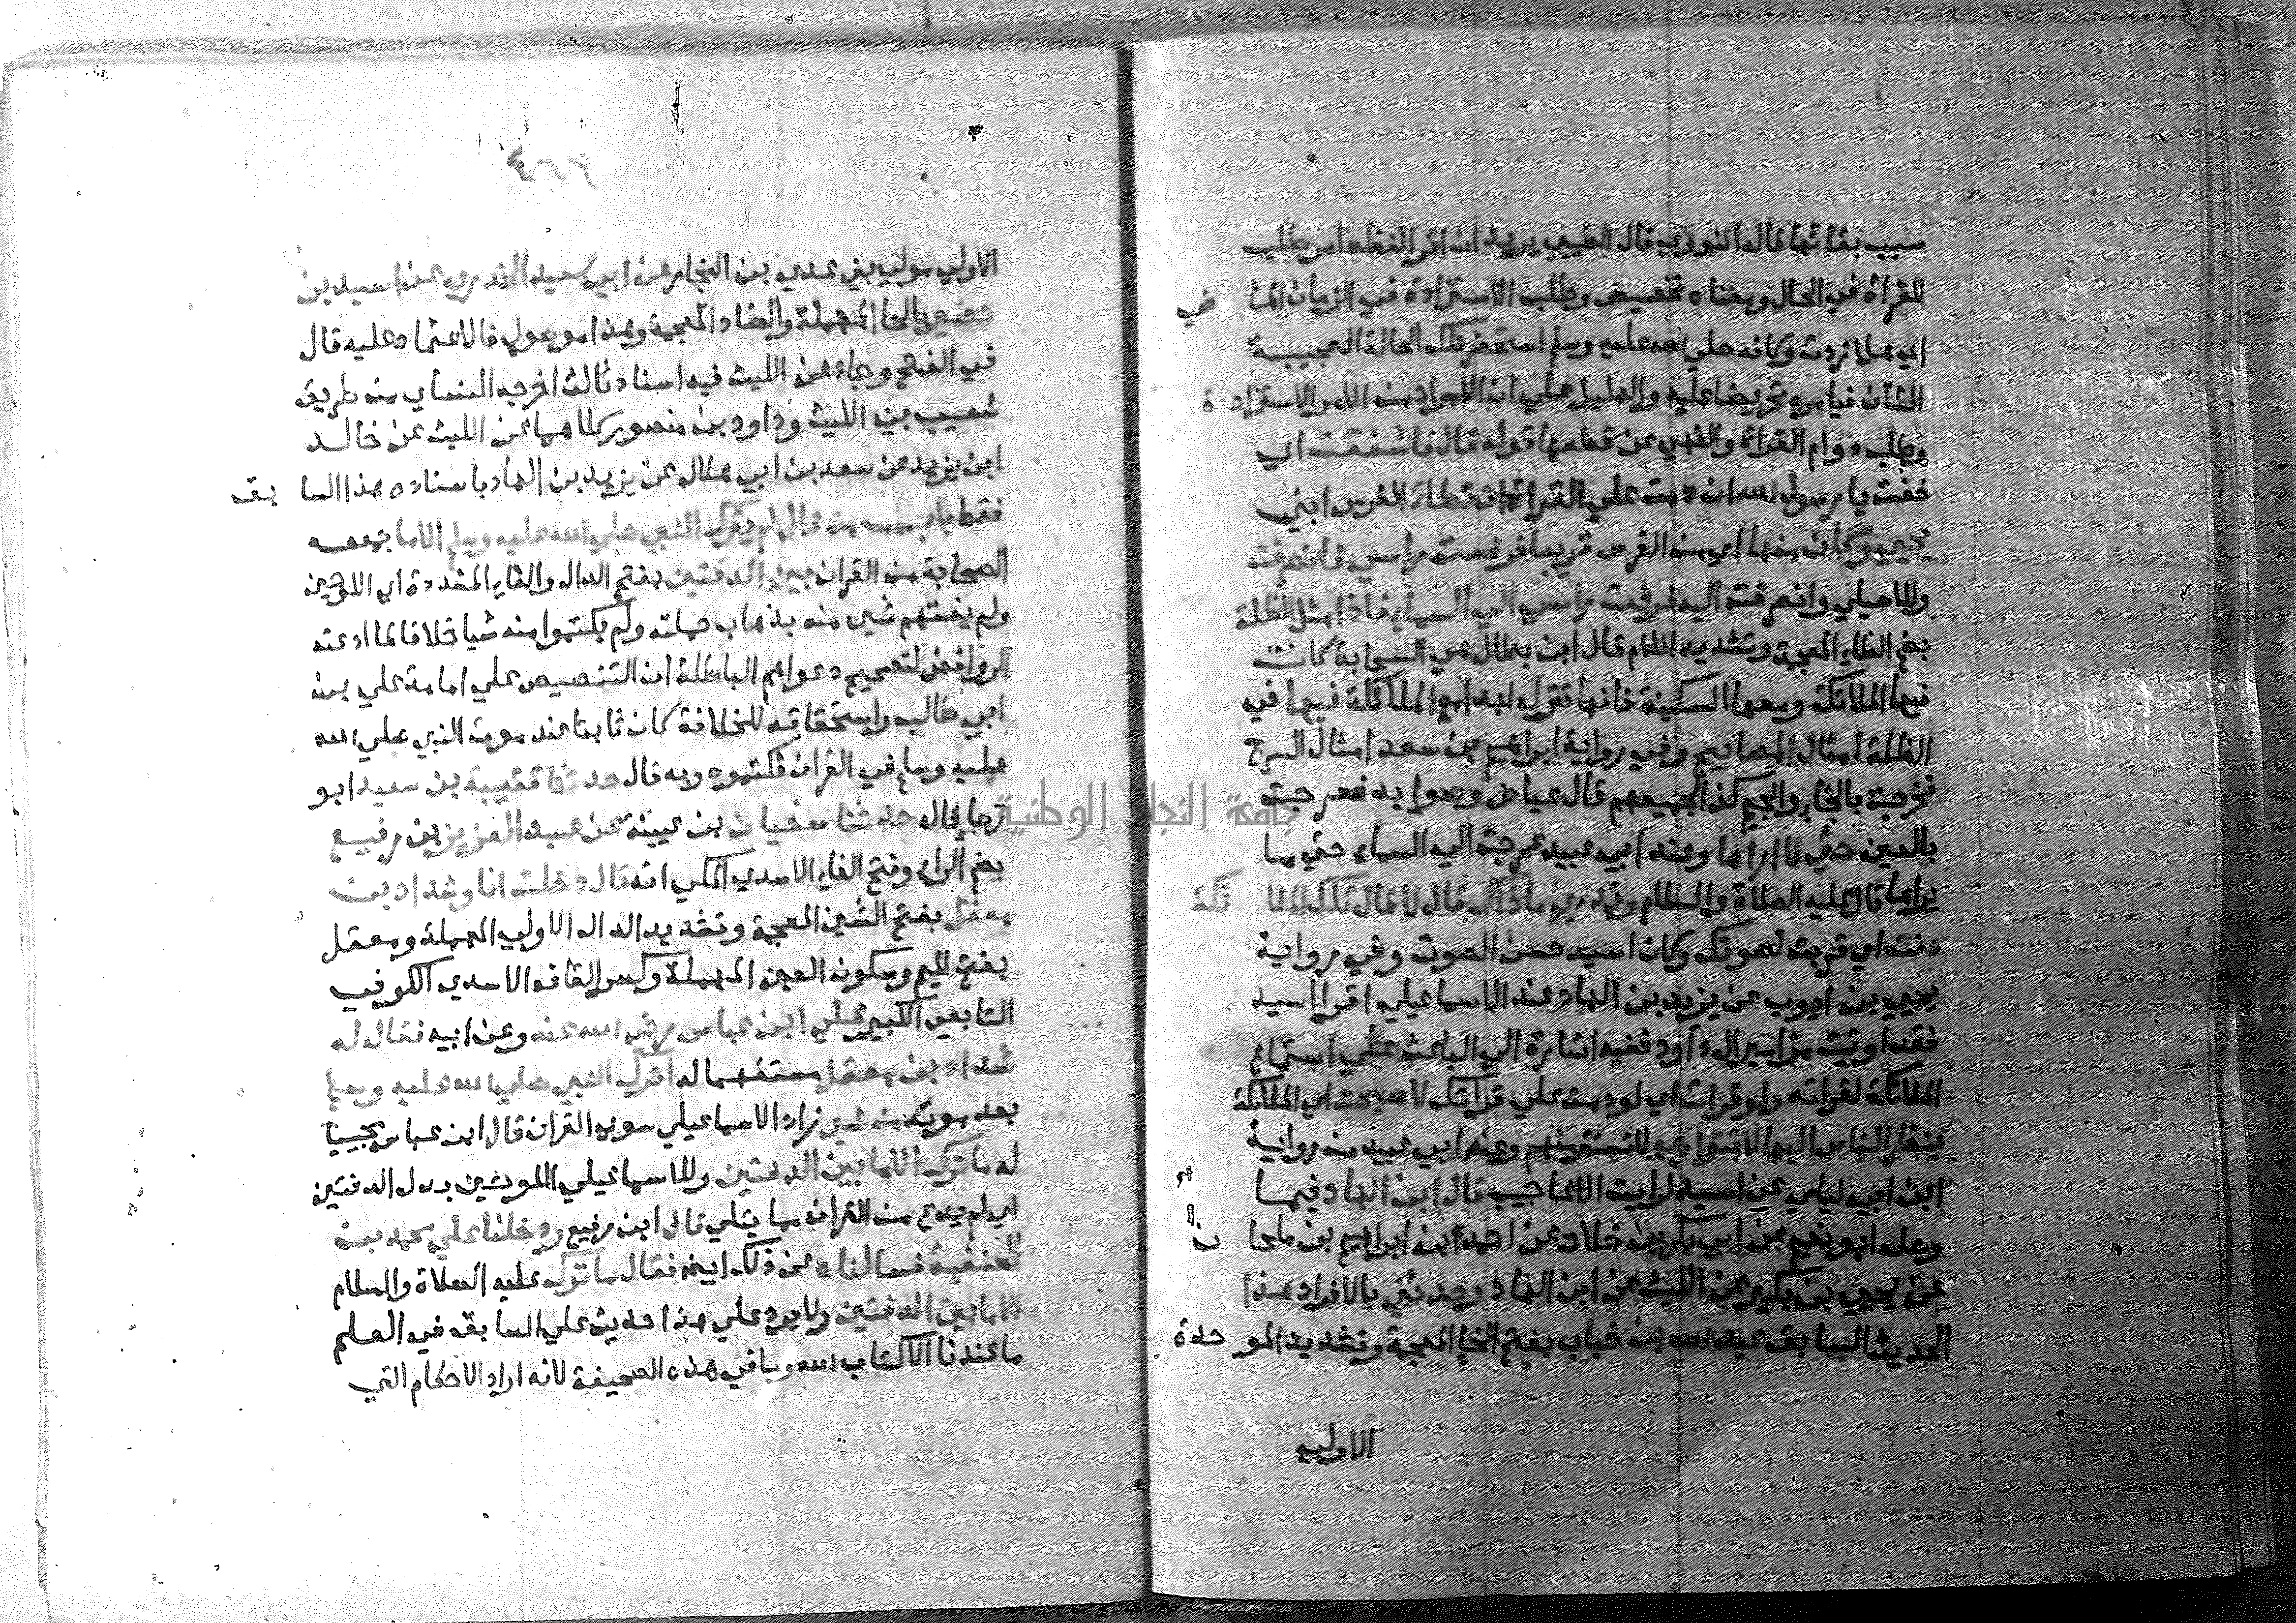 سبب بقائها قاله النووي قال الطيبي يريد ان اقرا لفظه امر طلب
للقراة في الحال ومعناه تخصيص وطلب الاستزادة في الزمان الما ضي
اي هلا زدت وكانه صلي الله عليه وسلم استحضر تلك الحالة العجيبة
الشان فيامره تحريضا عليه والدليل علي ان المراد من الامر الاستزاد ة
وطلب دوام القراة والنهي عن قطعها قوله قال فاشفقت اي
خفت يا رسول الله ان دمت علي القراة ان تطا الفرس ابني
يحيي وكان منها اي من الفرس قريبا فرفعت راسي فانصرفت
وللاصيلي وانصرفت اليه فرفعت راسي الي السماء فاذا مثل الظلة
بضم الظاء المعجمة وتشديد اللام قال ابن بطال هي السحابة كانت
فيها الملائكة ومعها السكينة فانها تنزل ابدا مع الملائكة فيها في
الظلة امثال المصابيح وفي رواية ابراهيم بن سعد امثال السرج
فخرجت بالخاء والجيم كذا لجميعهم قال عياض وصوابه فعرجت
بالعين حتي لا اراها وعند ابي عبيد عرجت الي السماء حتي ما
يراها قال عليه الصلاة والسلام وتدري ما ذاك قال لا قال تلك الملا ئكة
دنت اي قربت لصوتك وكان اسيد حسن الصوت وفي رواية
يحيي بن ايوب عن يزيد بن الهاد عند الاسماعيلي اقرا اسيد
فقد اوتيت مزامير ال داود ففيه اشارة الي الباعث علي استماع
الملائكة لقراته ولو قرات اي لو دمت علي قراتك لاصبحت اي الملائكة
ينظر الناس اليها لا تتواري لا تستتر منهم وعند ابي عبيد من رواية
ابن ابي ليلي عن اسيد لرايت الاعاجيب قال ابن الهاد فيما
وصله ابو نعيم عن ابي بكر بن خلاد عن احمد ابن ابراهيم بن ملحا ن
عن يحيي بن بكير عن الليث عن ابن الهاد وحدثني بالافراد هذا
الحديث السابق عبد الله بن خباب بفتح الخا المعجمة وتشديد المو حدة
الاولي
الاولي مولي بني عدي بن النجار عن ابي سعيد الخدري عن اسيد بن
حضير بالحا المهملة والضاد المعجمة وهذا موصول فالاعتماد عليه قال
في الفتح وجاء عن الليث فيه اسناد ثالث اخرجه النساي من طريق
شعيب بن الليث وداود بن منصور كلاهما عن الليث عن خالد
ابن يزيد عن سعد بن ابي هلال عن يزيد بن الهاد باسناده هذا السا بق
فقط باب من قال لم يترك النبي صلي الله عليه وسلم الا ما جمعه
الصحابة من القران بين الدفتين بفتح الدال والفاء المشددة اي اللوحين
ولم يفتهم شي منه بذهاب حملته ولم يكتموا منه شيا خلافا لما ادعته
الروافض لتصحيح دعواهم الباطلة ان التنصيص علي امامة علي بن
ابي طالب واستحقاقه للخلافة كان ثابتا عند موت النبي صلي الله
عليه وسلم في القران فكتموه وبه قال حدثنا قتيبة بن سعيد ابو
رجا قال حدثنا سفيان بن عيينة عن عبد العزيز بن رفيع
بضم الراء وفتح الفاء الاسدي المكي انه قال دخلت انا وشداد بن
معقل بفتح الشين المعجمة وتشديد الدال الاولي المهملة ومعقل
بفتح الميم وسكون العين المهملة وكسر القاف الاسدي الكوفي
التابعي الكبير علي ابن عباس رضي الله عنه وعن ابيه فقال له
شداد بن معقل مستفهما له اترك النبي صلي الله عليه وسلم
بعد موته من شي زاد الاسماعيلي سوي القران قال ابن عباس مجيبا
له ما ترك الا ما بين الدفتين وللاسماعيلي اللوحين بدل الدفتين
اي لم يدع من القران مما يتلي قال ابن رفيع ودخلنا علي محمد بن
الحنفية فسالناه عن ذلك ايضا فقال ما ترك عليه الصلاة والسلام
الا ما بين الدفتين ولا يرد علي هذا حديث علي السابق في العلم
ما عندنا الا كتاب الله وما في هذه الصحيفة لانه اراد الاحكام التي
جامعة النجاح الوطنية